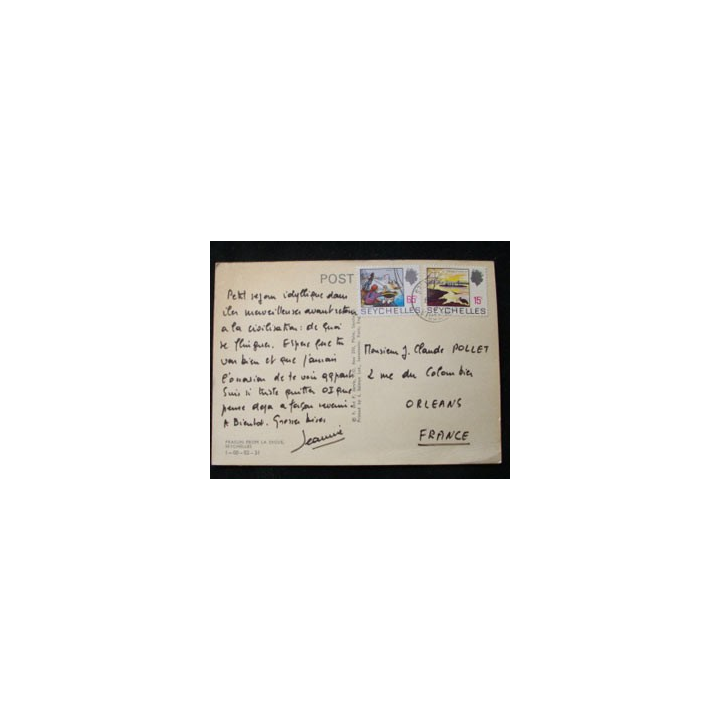 POST
65c
SEYCHELLES
15c
SEYCHELLES
Petit séjour idyllique dans
îles merveilleuses avant retour
a la civilisation : de quoi
se flinguer. Espère que tu
vas bien et que j'aurai
l'occasion de te voir
Suis si triste quitter OI que
pense déjà a façon revenir.
A Bientot. Grosses bises
Jeannie
Monsieur J. Claude POLLET
2 rue du Colombier
ORLEANS
FRANCE
PRASLIN FROM LA DIGUE,
SEYCHELLES